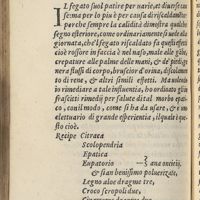 IL fegato suol patire per varie, et diuerse ca
se: ma per lo piu è per causa di riscaldamẽto
per che sempre la calidità dimostra qualche
segno esteriore, come ordinariamente si uede alla
giornata, che'l fegato riscaldato fa questi effetti
cioè rossore in faccia è nel naso, male alle gẽgie,
crepature alle palme delle mani, & è pitigini
nera flussi di corpo, brusciar d'orina, di dolori
to di rene, & altri simili effetti. Ma à uolendo
ti rimediare a tale infuentia, ho ordinato gli
frascritti remedij per salute di tal morbo epa
co, con il modo, come si ha da usare, & è me
elettuario di grande esperientia, ilquale è que
sto cioè.
Recipe Citraca
Scolopendria
Epatica
Eupatorio ana oncie iij,
& sian benissimo poluerizate,
Legno aloe dragme tre,
Croco scropoli due,